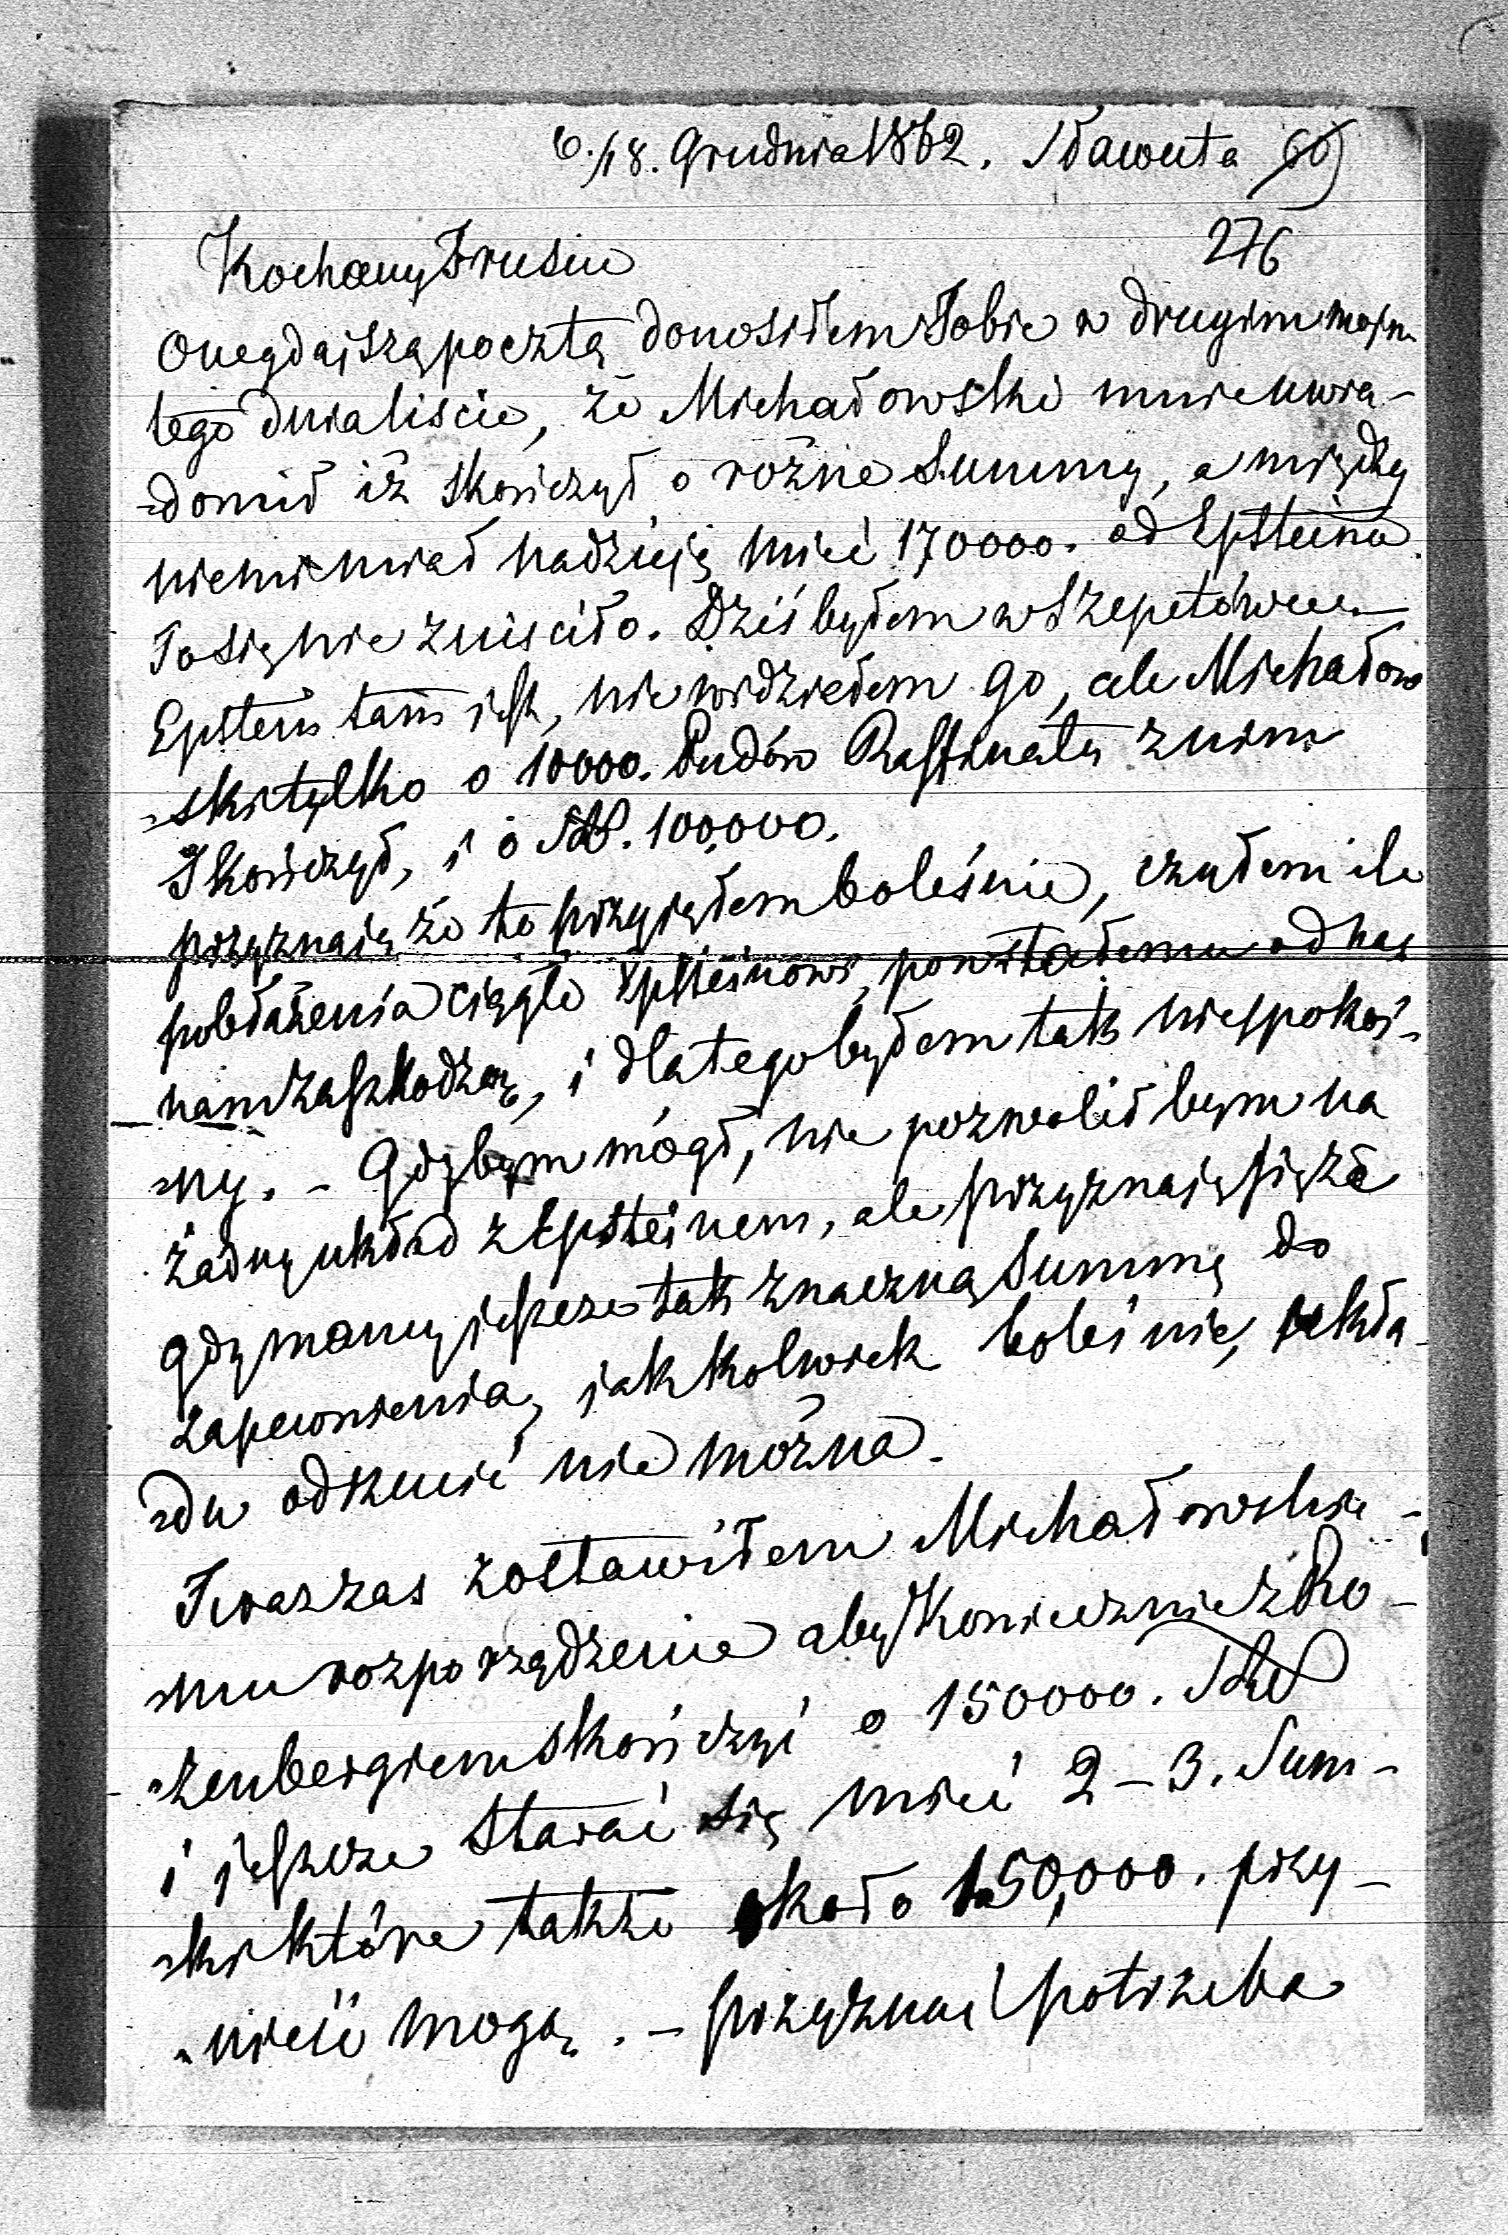 6./18. Grudnia 1862. Sławuta 66)
276
Kochany Brusiu
Onegdajszą pocztą donosiłem Tobie w drugim
tego dnia liście, że Michałowski mnie uwia-
-domił iż skończył o różne Summy, a między
niemi miał nadzieję mieć 170000. od Epsteina.
To się nie ziściło. Dziś byłem w Szepetówce.—
Epstein tam jest, nie widziałem go, ale Michałow
-ski tylko o 10000. Pudów Raffinaty z nim
Skończył, i o SR. 100,000.
przyznaję że to przyjąłem boleśnie, czułem ile
pobłażenia ciągłe Epsteinowi, powstałemu od nas
nam zaszkodzą, i dla tego byłem tak niespokoj-
-ny. - Gdybym mógł, nie pozwolił bym na
żadny układ z Epsteinem, ale przyznaję się że
gdy mamy jeszcze tak znaczną Summę do
zapewnienia, jakkolwiek boleśnie, ukła-
-du odrzucić nie można.
Teraz zas zostawiłem Michałowskie-
-mu rozporządzenie aby Koniecznie z Ro-
-zenbergiem skończyć o 150000. SR
i jeszcze starać się mieć 2-3. Sum-
-ki które także około 150,000. przy-
-nieść mogą. - przyznać potrzeba